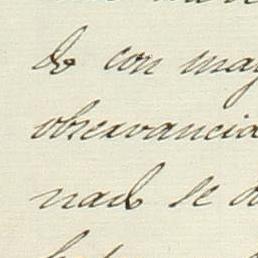 do con may
obserancia
nado se o